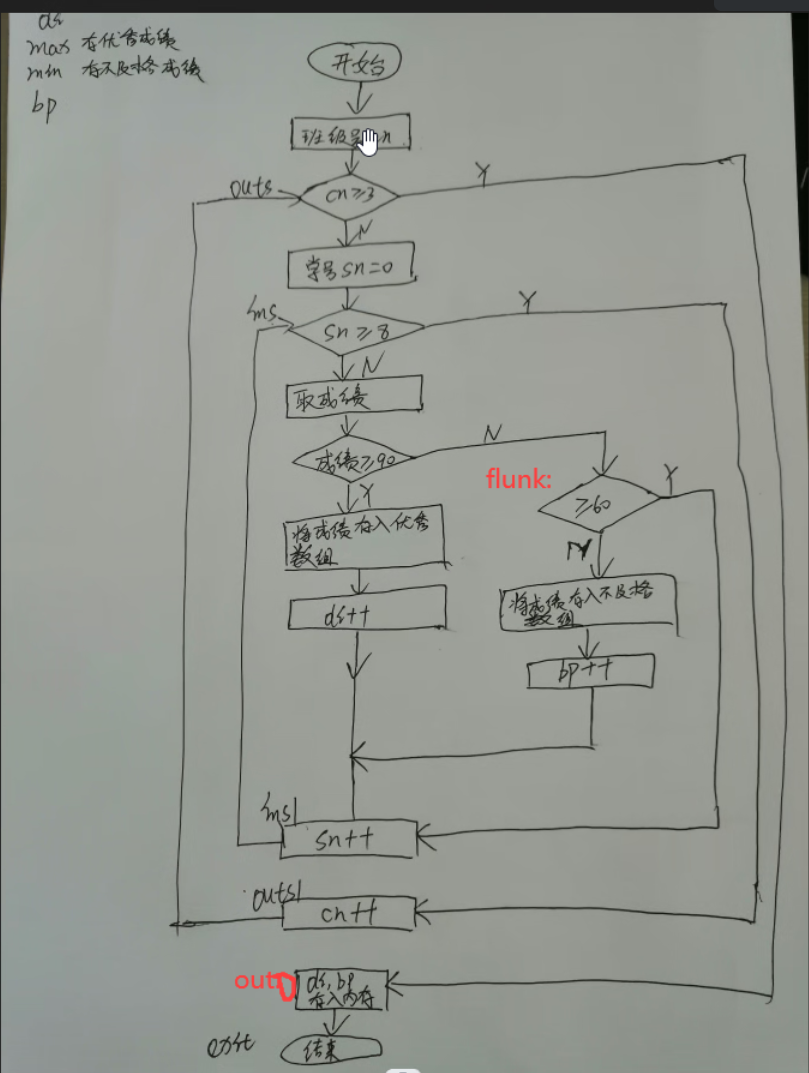 di
max 存优秀成绩
min 存不及格成绩
bp
开始
班级号 n
outs
cn≥3
Y
N
学号 sn=0
ins
sn≥8
Y
N
取成绩
成绩≥90
N
Y
flunk:
≥60
Y
N
将成绩存入优秀
数组
di++
将成绩存入不及格
数组
bp++
ins1
sn++
outs1
cn++
out
di, bp
存入内存
exit
结束